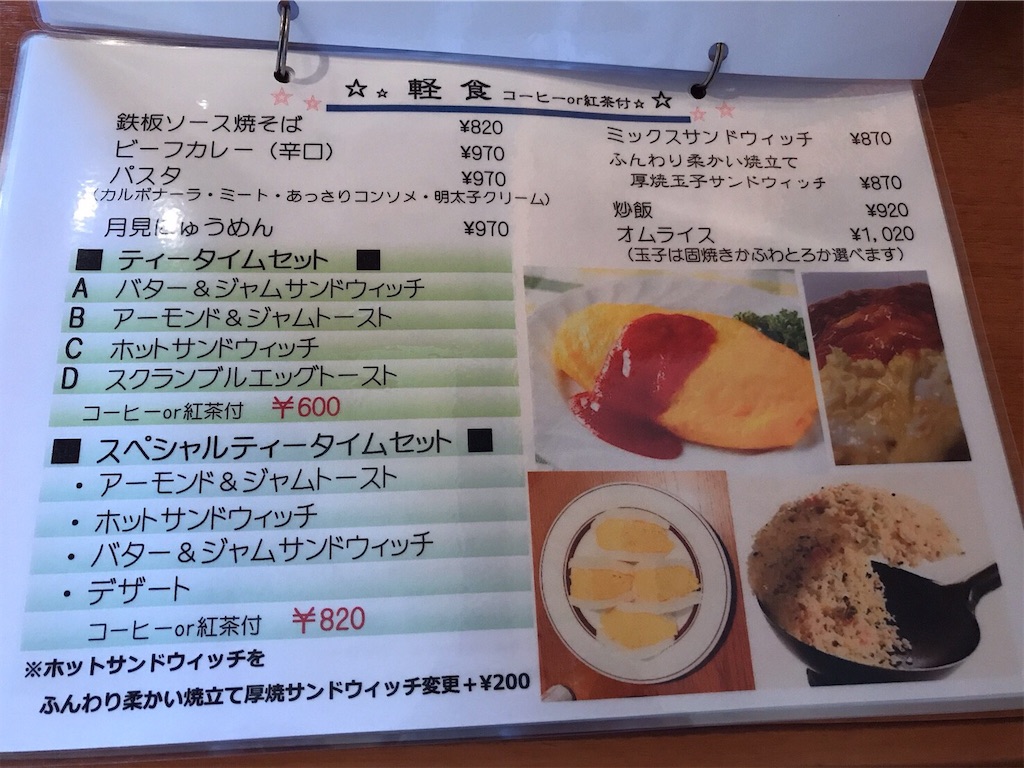 ☆☆ 軽食 コーヒーor紅茶付☆☆
鉄板ソース焼そば ¥820
ビーフカレー（辛口） ¥970
パスタ ¥970
（カルボナーラ・ミート・あっさりコンソメ・明太子クリーム）
月見にゅうめん ¥970
ミックスサンドウィッチ ¥870
ふんわり柔かい焼立て
厚焼玉子サンドウィッチ ¥870
炒飯 ¥920
オムライス ¥1,020
（玉子は固焼きかふわとろか選べます）
■ ティータイムセット ■
A バター＆ジャムサンドウィッチ
B アーモンド＆ジャムトースト
C ホットサンドウィッチ
D スクランブルエッグトースト
コーヒーor紅茶付 ￥600
■ スペシャルティータイムセット ■
・アーモンド＆ジャムトースト
・ホットサンドウィッチ
・バター＆ジャムサンドウィッチ
・デザート
コーヒーor紅茶付 ￥820
※ホットサンドウィッチを
ふんわり柔かい焼立て厚焼サンドウィッチ変更＋¥200